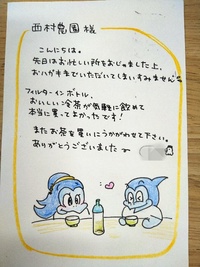 西村茗園 様
こんにちは。
先日はお忙しい所をおじゃました上、
おハガキまでいただいてしまいすみません
フィルターインボトル、
おいしい冷茶が気軽に飲めて
本当に買ってよかったです!
またお茶を買いにうかがわせて下さい。
ありがとうございました